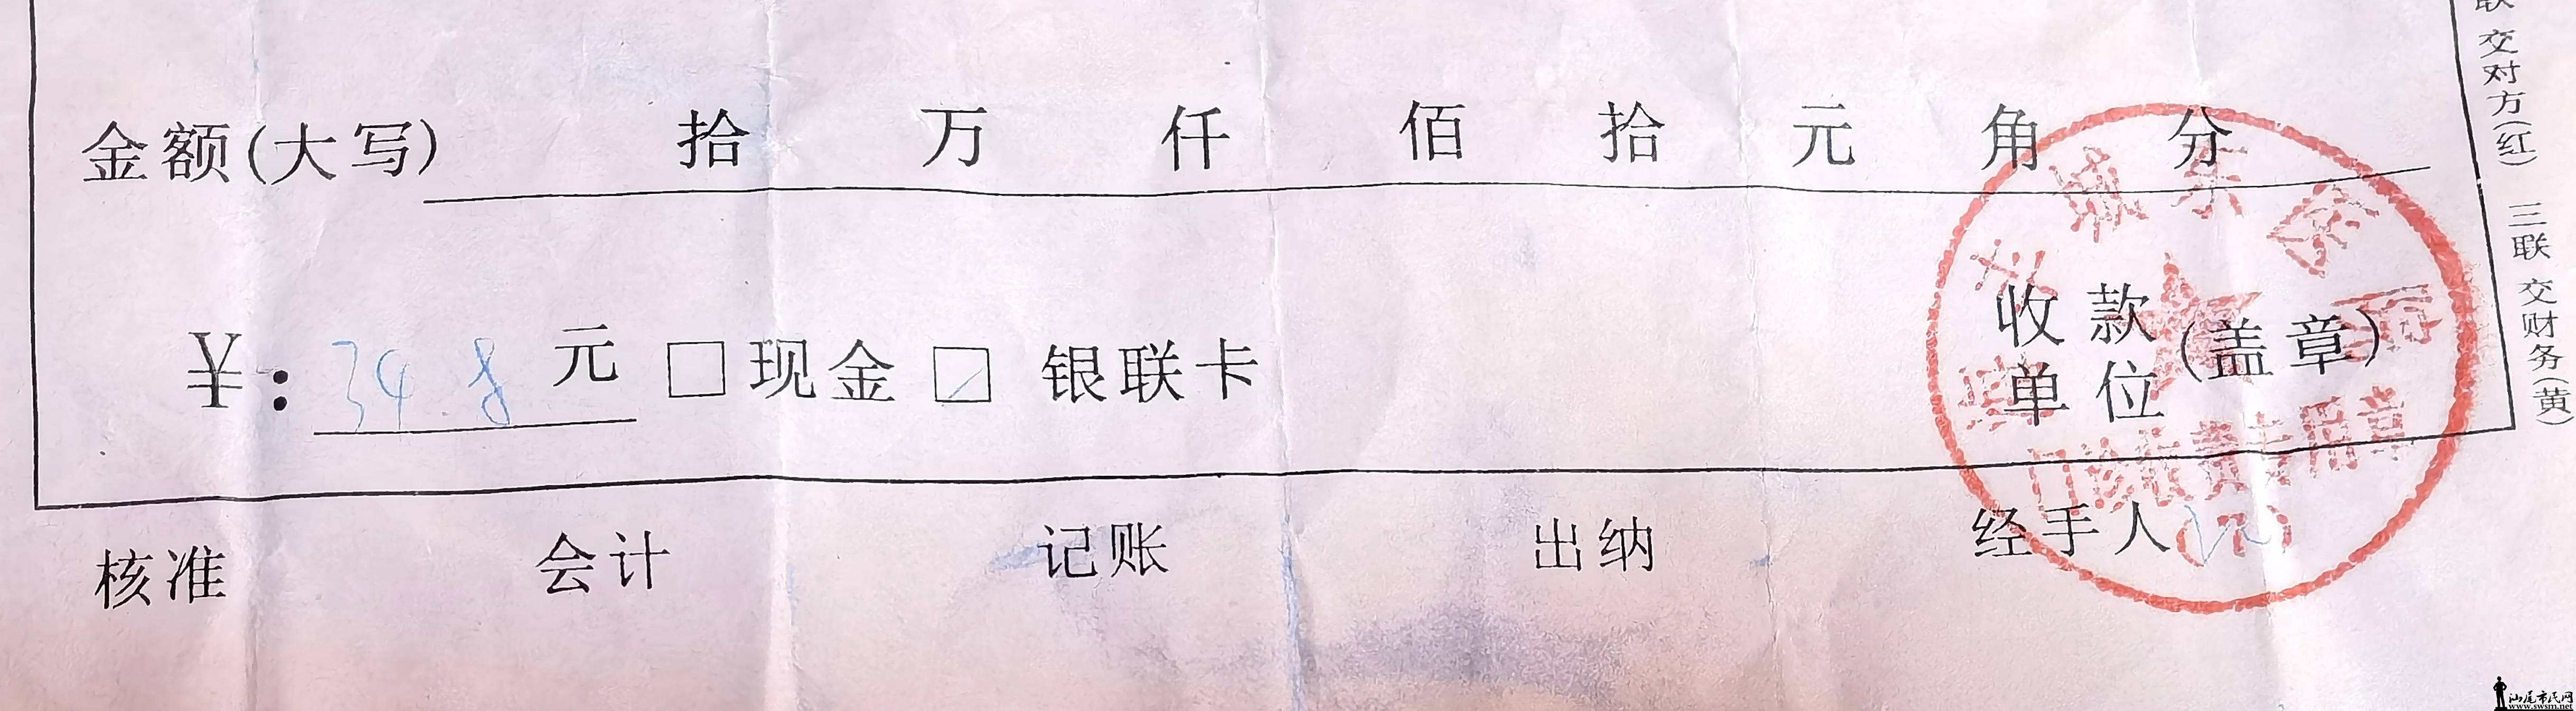 金额(大写) 拾 万 仟 佰 拾 元 角 分
¥: 348 元 □现金 ☑ 银联卡
收款
单位
(盖章)
门诊收费专用章
核准 会计 记账 出纳 经手人
联 交对方(红)
三联 交财务(黄)
汕尾市民网
www.swsm.net